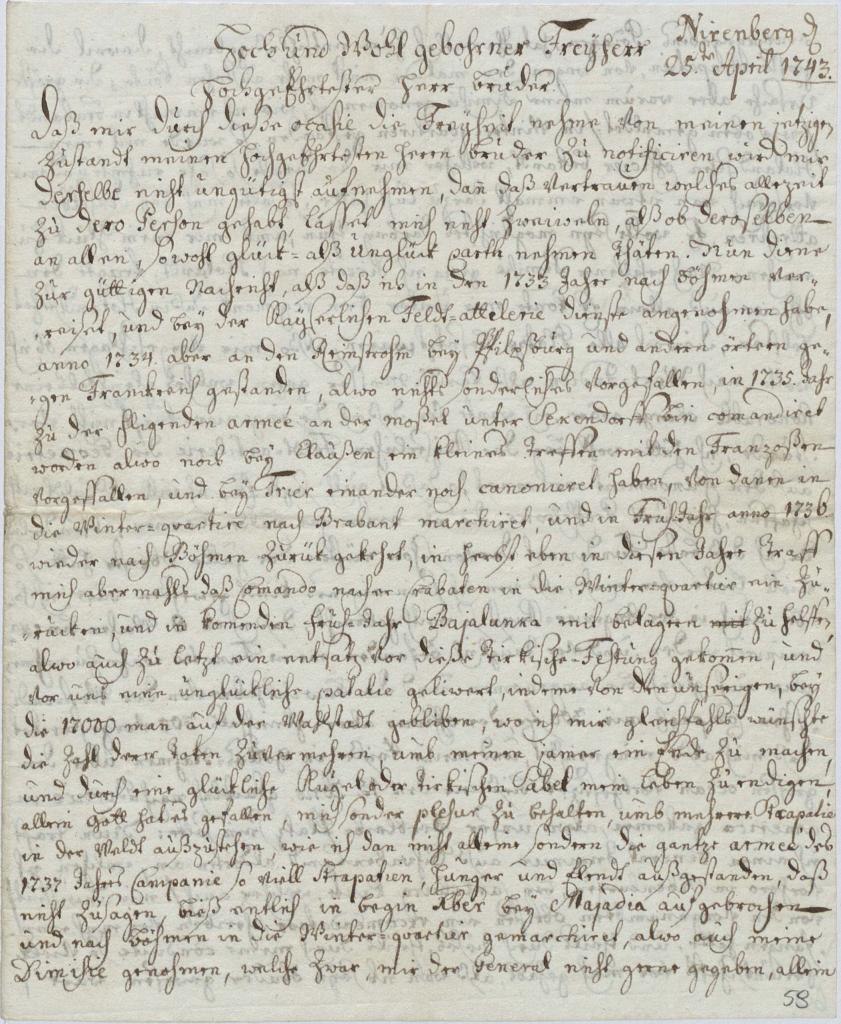 Nirenberg d
25te April 1743.
Hoch und Wohl gebohrner Freyherr
Hochgeehrtester Herr bruder
Daß mir durch dieße ocasie die Freyheit nehme von meinen jetzigen
Zustandt meinen hochgeehrtesten Herrn bruder zu notificiren, wird mir
derselbe nicht ungütigst aufnehmen, dan daß vertrauen welches allezeit
zu dero Person gehabt, lasset mich nicht zweiweln, alß ob deroselben
an allen, sowohl glück- alß unglück parth nehmen thäten. Nun diene
zur güttigen Nachricht, alß daß ich in den 1733 Jahre nach Böhmen ver-
-reiset, und bey der Kayserlichen Feldt-attilerie dienste angenohmen habe,
anno 1734. aber an den Reinstrohm bey Philipsburg und andern örtern ge-
-gen Franckreich gestanden, alwo nichts sonderliches vorgefallen, in 1735. Jahr
zu der fligenden armeé an der moßel unter Sekendorff bin comandiret
worden alwo noch bey Claußen ein kleines treffen mit den Franzoßen
vorgeffallen, und bey Trier einander noch canonieret haben, von danen in
die Winter-quartire nach Brabant marchiret, und in Frühjahr anno 1736
wieder nach Böhmen zurük gekehrt, in herbst eben in diesen Jahre traff
mich abermahls daß Comando nacher Crabaten in die Winter-quartir ein zu-
-rücken, und in komenden früh-Jahr Bajalunka mit belagern zu helffen,
alwo auch zu letzt ein entsatz vor dieße tirkische Festung gekommen, und
vor uns eine unglückliche patalie geliwert, indeme von den unserigen, bey
die 17000 man auf der Wahlstadt gebliben, wo ich mir gleichfahls wünschte
die Zahl derer toten zu vermehren, umb meinen jamer ein Ende zu machen,
und durch eine glückliche Kugel oder tirkischen Sabel mein leben zu endigen,
allein Gott hat es gefallen, mich sonder plesur zu behalten, umb mehrere Strapatie
in der Weldt außzustehen, wie ich dan nicht alleine sondern die gantze armeé des
1737 Jahres Campanie so viell Strapatien, Hunger und Elendt außgestanden, daß
nicht zusagen, bieß entlich in begin 8ber bey Majadia aufgebrochen
und nach Böhmen in die Winter-quartir gemarchiret, alwo auch meine
Dimihse genohmen, welche zwar mir der General nicht gerne gegeben, allein
58